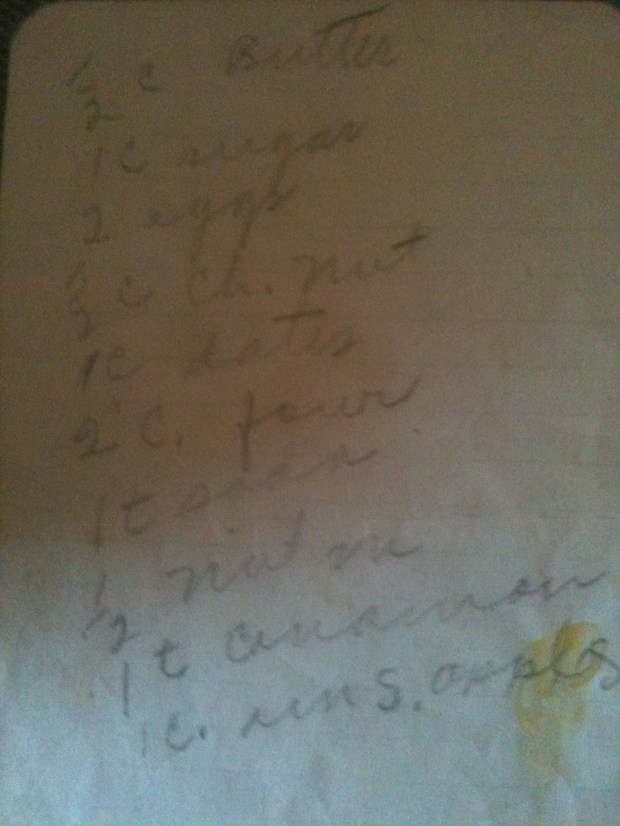 1/2 c Butter
1c sugar
2 eggs
1/2 c ch. nut
1c dates
2 c. flour
1t soda
1/2 nut m
1t cinamon
1c. uns. apples